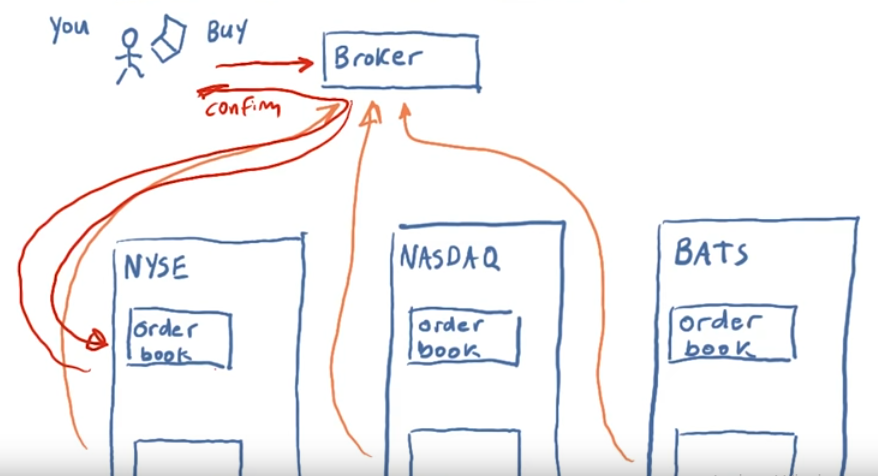 You
Buy
Broker
confirm
NYSE
order
book
NASDAQ
order
book
BATS
order
book